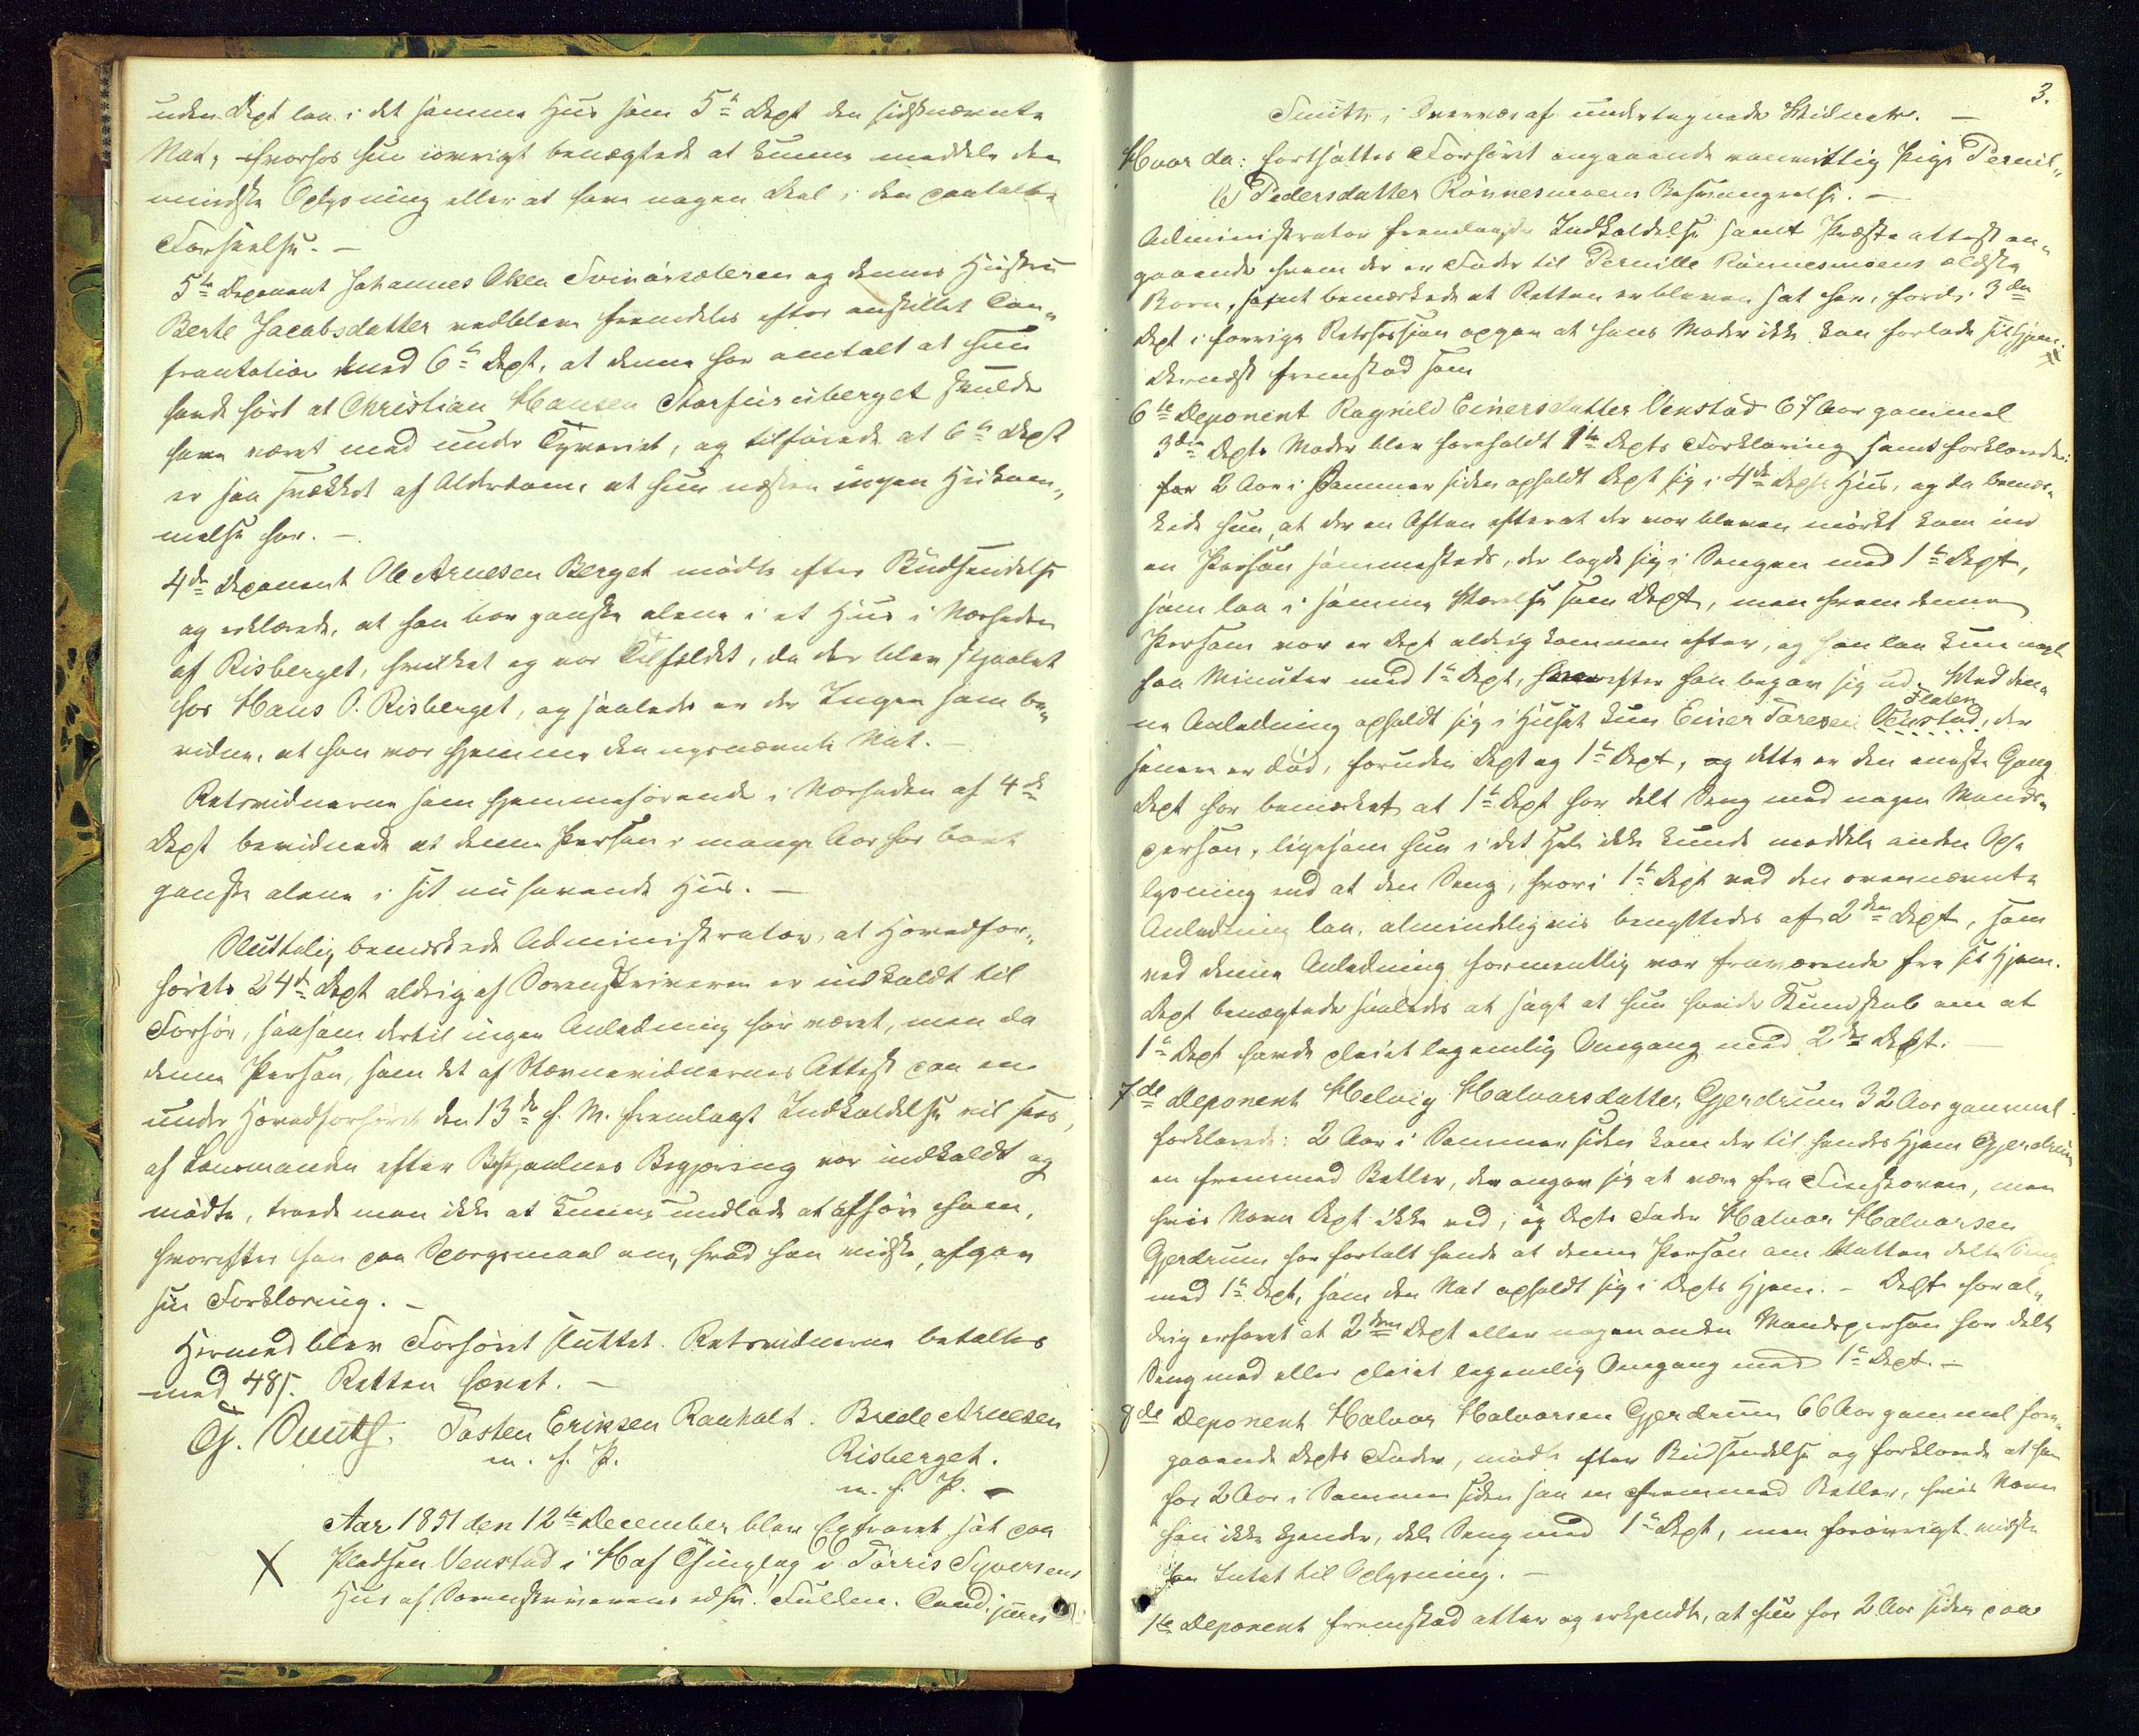 uden Dept laa i det samme Huus som 5te Dept den sidstnævnte
Nat, hvorfor hun iøvrigt benægtede at kunne meddele den
mindste Oplysning eller at have nogen Deel i den paatalte
Forseelse. –
5te Deponent Johannes Olsen Svinaasæteren og dennes Hustru
Berte Jacobsdatter vedblev fremdeles efter anstillet Con„
frontation med 6te Dept, at denne har omtalt at hun
havde hørt at Christian Hansen Storfuruberget skulde
have været med under Tyveriet, og tilføiede at 6te Dept
er saa svækket af Alderdom, at hun næsten ingen Hukom„
melse har. –
4de Deponent Ole Arnesen Berget mødte efter Budsendelse
og erklærede, at han bor ganske alene i et Huus i Nærheden
af Risberget, hvilket og var Tilfældet, da der blev stjaalet
hos Hans O. Risberget, og saaledes er der Ingen som be„
vidner, at han var hjemme den nysnævnte Nat. –
Retsvidnerne som hjemmehørende i Nærheden af 4de
Dept bevidnede at denne Person i mange Aar har boet
ganske alene i sit nuhavende Huus. –
Sluttelig bemærkede Administrator, at Hovedfor„
hørets 24de Dept aldrig af Sorenskriveren er indkaldt til
Forhør, saasom dertil ingen Anledning har været, men da
denne Person, som det af Stævnevidnernes Attest paa en
under Hovedforhøret den 13de f. M. fremlagt Indkaldelse vil sees,
af Lensmanden efter Begjæring var indkaldt og
mødte, troede man ikke at kunne undlade at afhøre ham,
hvorefter han paa Spørgsmaal om, hvad han vidste, afgav
sin Forklaring. –
Hermed blev Forhøret sluttet. Retsvidnerne betaltes
med 48 s. Retten hævet. –
Cj. Smith. Tosten Eriksen Raaholt. Brede Arnesen
m. f. P. Risberget.
m. f. P. –
Aar 1851 den 12te December blev Extraret sat paa
X Pladsen Venstad i Hof Thinglag i Tørris Syversens
Huus af Sorenskriverens edsv. Fuldm. Cand. juris
3.
Smith, i Overvær af undertegnede Vidner. –
Hvor da: fortsattes Forhøret angaaende vanvittig Pige Pernil„
le Pedersdatter Rønnesmoens Besvangrelse. –
Administrator fremlagde Indkaldelse samt Præsteattest an„
gaaende hvem der er Fader til Pernille Rønnesmoens ældste
Barn, samt bemærkede at Retten er bleven sat her, fordi 3die
Dept i forrige Retssession opgav at hans Moder ikke kan forlade sit Hjem.
Dernæst fremstod som
6te Deponent Ragnild Einersdatter Venstad 67 Aar gammel
3die Depts Moder blev foreholdt 1te Depts Forklaring samt forklarede:
for 2 Aar i Sommer siden opholdt Dept sig i 4de Depts Huus, og da bemær„
kede hun, at der en Aften efterat der var bleven mørkt kom ind
en Person sammesteds, der lagde sig i Sengen med 1te Dept,
som laa i samme Værelse som Dept, men hvem denne
Person var er Dept aldrig kommen efter, og han laa kun nogle
faa Minuter med 1te Dept, hvorefter han begav sig ud. Ved den„
ne Anledning opholdt sig i Huset kun Einer Toresen Venstad, der
Floten
senere er død, foruden Dept og 1te Dept, og dette er den eneste Gang
Dept har bemærket at 1te Dept har delt Seng med nogen Mands„
person, ligesom hun i det Hele ikke kunde meddele anden Op„
lysning end at den Seng, hvori 1te Dept ved den ovennævnte
Anledning laa, almindeligviis benyttedes af 2den Dept, som
ved denne Anledning formentlig var fraværende fra sit Hjem.
Dept benægtede saaledes at sagt at hun havde Kundskab om at
1te Dept havde pleiet legemlig Omgang med 2den Dept. –
7de Deponent Helvig Halvorsdatter Gjerdrum 32 Aar gammel
forklarede: 2 Aar i Sommer siden kom der til hendes Hjem Gjerdrum
en fremmed Betler, der angav sig at være fra Finskoven, men
hvis Navn Dept ikke ved, og Depts Fader Halvor Halvorsen
Gjerdrum har fortalt hende at denne Person om Natten delte Seng
med 1te Dept, som den Nat opholdt sig i Depts Hjem. – Dept har al„
drig erfaret at 2den Dept eller nogen anden Mandsperson har delt
Seng med eller pleiet legemlig Omgang med 1te Dept. –
8de Deponent Halvor Halvorsen Gjerdrum 66 Aar gammel fore„
gaaende Depts Fader, mødte efter Budsendelse og forklarede at han
for 2 Aar i Sommer siden saa en fremmed Betler, hvis Navn
han ikke kjender, dele Seng med 1te Dept, men forøvrigt vidste
han Intet til Oplysning. –
1te Deponent fremstod atter og erkjendte, at hun for 2 Aar siden paa